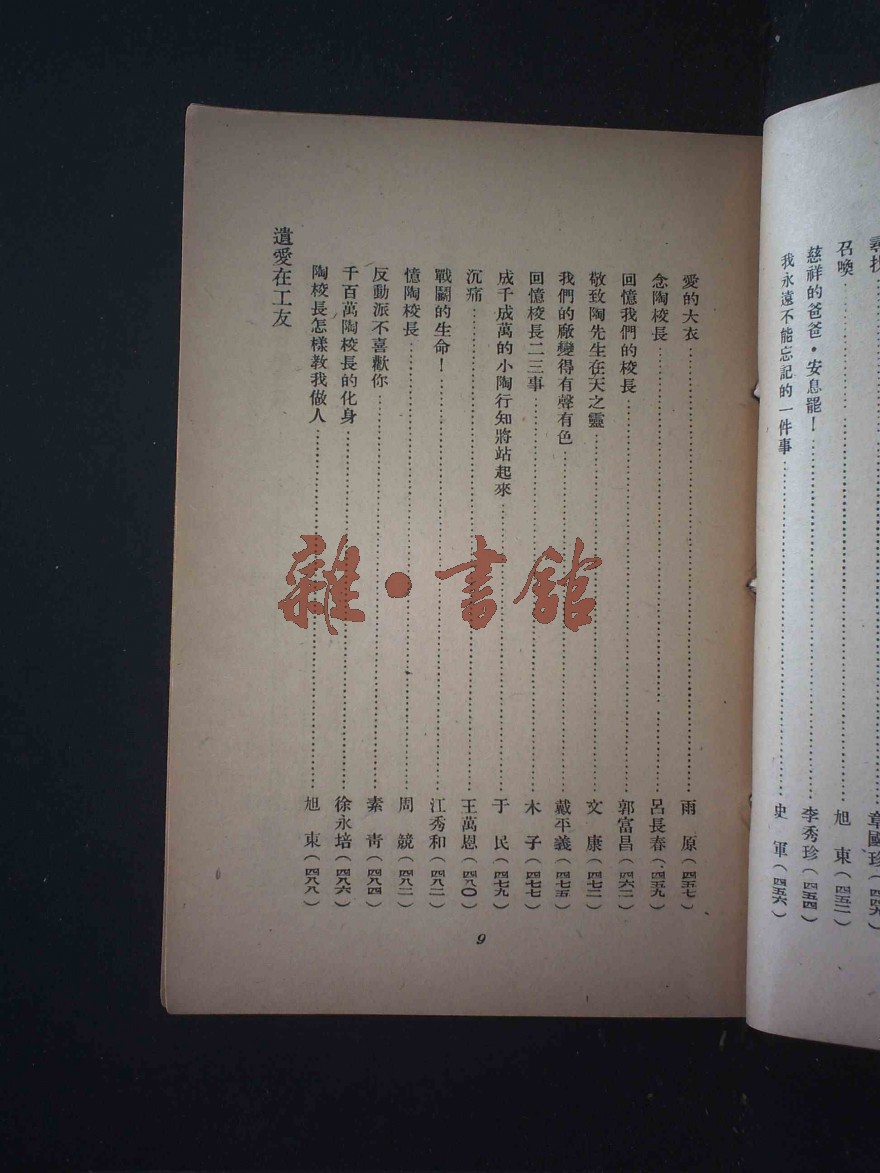 尋找……章國珍(四四九)
召喚……旭東(四五二)
慈祥的爸爸·安息罷!……李秀珍(四五四)
我永遠不能忘記的一件事……史軍(四五六)
愛的大衣……雨原(四五七)
念陶校長……呂長春(四五九)
回憶我們的校長……郭富昌(四六二)
敬致陶先生在天之靈……文康(四七二)
我們的廠變得有聲有色……戴平義(四七五)
回憶校長二三事……木子(四七七)
成千成萬的小陶行知將站起來……于民(四七九)
沉痛……王萬恩(四八〇)
戰鬭的生命!……江秀和(四八二)
憶陶校長……周競(四八二)
反動派不喜歡你……素靑(四八四)
千百萬陶校長的化身……徐永培(四八六)
陶校長怎樣教我做人……旭東(四八八)
遺愛在工友
9
雜·書館